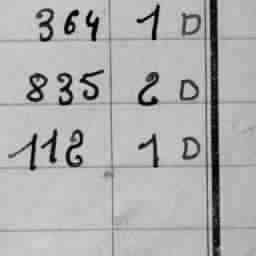 364 1 D
835 2 D
112 1 D